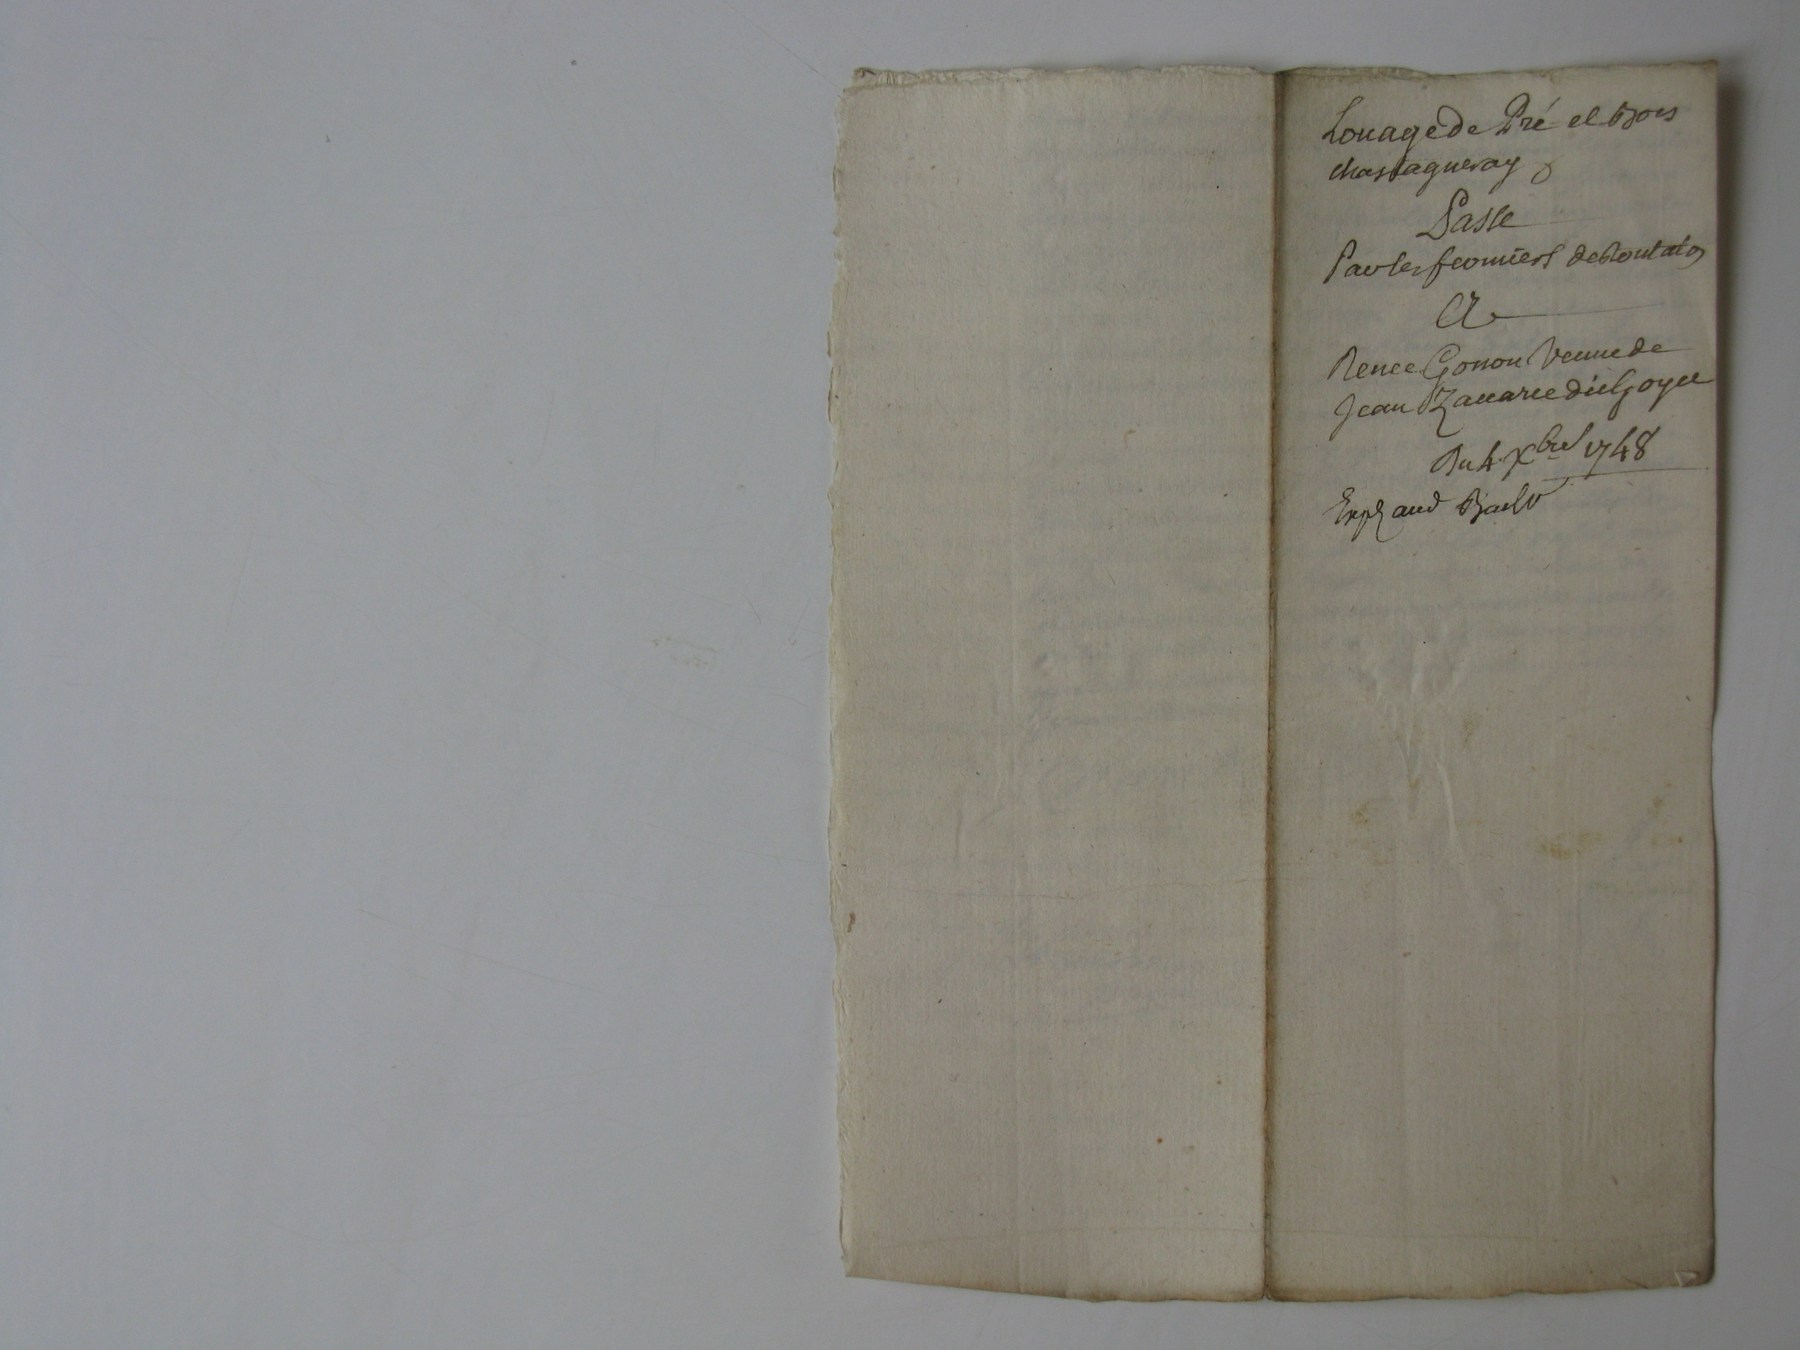 Louage de Pré et Bois
chastagneray
Passé
Par les fermiers de Rontalon
A
Renee Gonon Veuve de
Jean Zacarie dit Goyet
Du 4 Xbre 1748
Expd aud Bail